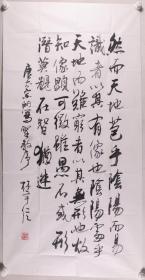 然而天地苞乎陰陽而易
識者以其有象也陰陽處乎
天地而難窮者以其無形也故
知像顯可徵雖愚不惑形
潛莫覩在智猶迷
唐太宗 聖教序